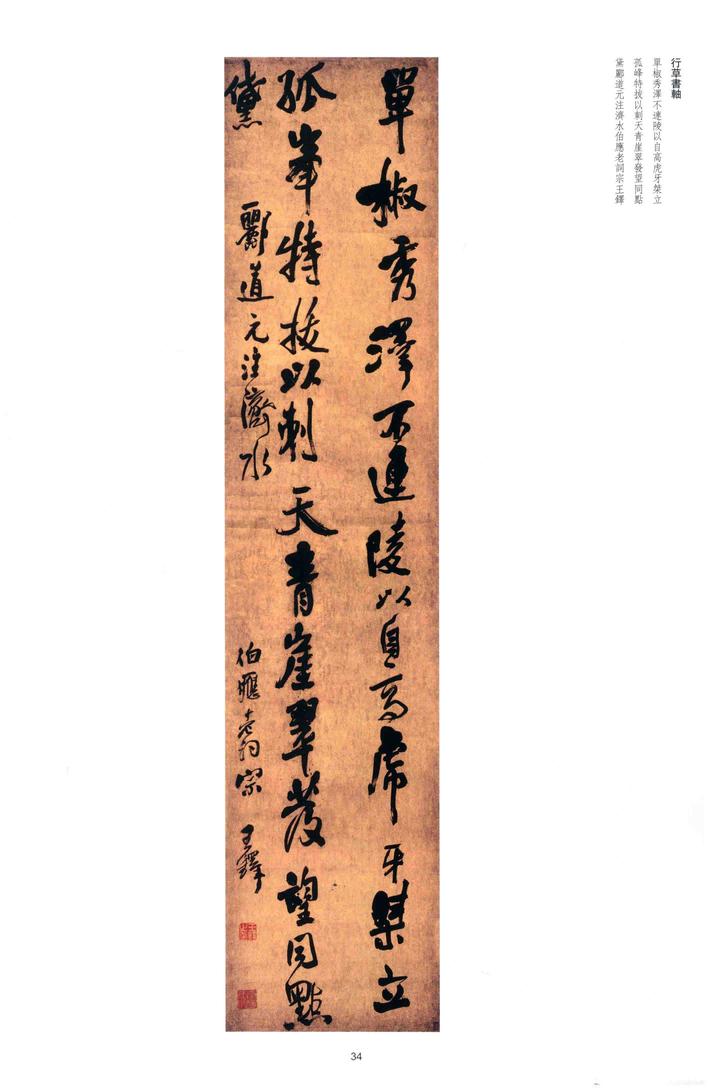 行草書軸
單椒秀澤不連陵以自高虎牙桀立
孤峰特拔以刺天青崖翠發望同點
黛酈道元注濟水伯應老詞宗王鐸
單椒秀澤不連陵以自高虎牙桀立
孤峯特拔以刺天青崖翠發望同點
黛 酈道元注濟水 伯應老詞宗 王鐸
34